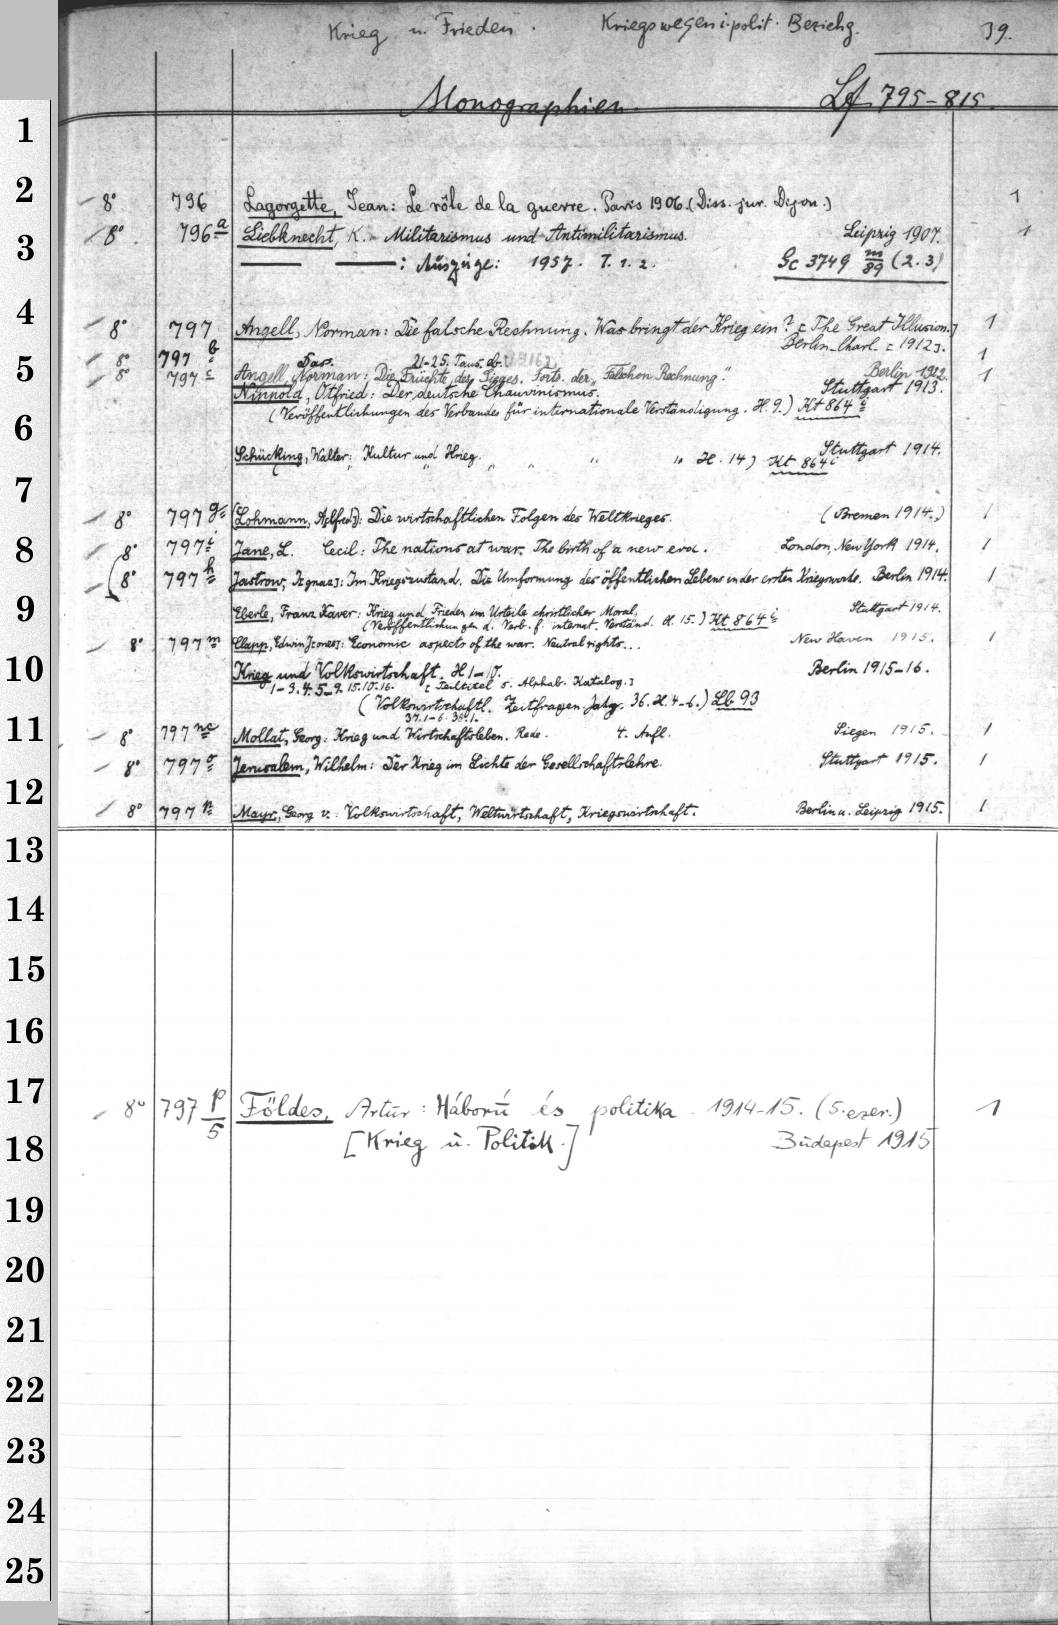 Krieg u. Frieden. Kriegswesen i. polit. Beziehg. 39.
Monographien. Lf 795-815.
1
2
3
4
5
6
7
8
9
10
11
12
13
14
15
16
17
18
19
20
21
22
23
24
25
8° 796 Lagorgette, Jean: Le rôle de la guerre. Paris 1906. (Diss. jur. Dijon.) 1
8° 796 a Liebknecht, K. - Militarismus und Antimilitarismus. Leipzig 1907. 1
— — : Auszüge: 1957. T. 1. 2. Gc 3749 m/89 (2.3)
8° 797 Angell, Norman: Die falsche Rechnung. Was bringt der Krieg ein? [The Great Illusion.] 1
Berlin-Charl. [1912].
8° 797 b Das. 21-25. Taus. 1
8° 797 c Angell, Norman: Die Früchte des Sieges. Forts. der „Falschen Rechnung." Berlin 1922. 1
Nippold, Otfried: Der deutsche Chauvinismus. Stuttgart 1913.
(Veröffentlichungen des Verbandes für internationale Verständigung. H. 9.) Kt 864 i
Schücking, Walter: Kultur und Krieg. Stuttgart 1914.
( " " " " " " H. 14) Kt 864 i
8° 797 g [Lohmann, A[lfred]: Die wirtschaftlichen Folgen des Weltkrieges. (Bremen 1914.) 1
8° 797 i Jane, L. Cecil: The nations at war. The birth of a new era. London, New York 1914. 1
8° 797 h Jastrow, I[gnaz]: Im Kriegszustand. Die Umformung des öffentlichen Lebens in der ersten Kriegswoche. Berlin 1914. 1
Eberle, Franz Xaver: Krieg und Frieden im Urteile christlicher Moral. Stuttgart 1914.
(Veröffentlichungen d. Verb. f. internat. Verständ. H. 15.) Kt 864 i
8° 797 m Clapp, Edwin J[ones]: Economic aspects of the war. Neutral rights... New Haven 1915. 1
Krieg und Volkswirtschaft. H 1-10. Berlin 1915-16.
1-3. 4. 5-9. 15. 10. 16. [Teiltitel s. Alphab. Katalog.]
(Volkswirtschaftl. Zeitfragen. Jahrg. 36. H. 4-6.) Lb 93
37. 1-6. 38. 1.
8° 797 nc Mollat, Georg: Krieg und Wirtschaftsleben. Rede. 4. Aufl. Siegen 1915. 1
8° 797 o Jerusalem, Wilhelm: Der Krieg im Lichte der Gesellschaftslehre. Stuttgart 1915. 1
8° 797 p Mayr, Georg v.: Volkswirtschaft, Weltwirtschaft, Kriegswirtschaft. Berlin u. Leipzig 1915. 1
8° 797 p/5 Földes, Artur: Háború és politika. 1914-15. (5. ezer.) 1
[Krieg u. Politik.] Budapest 1915